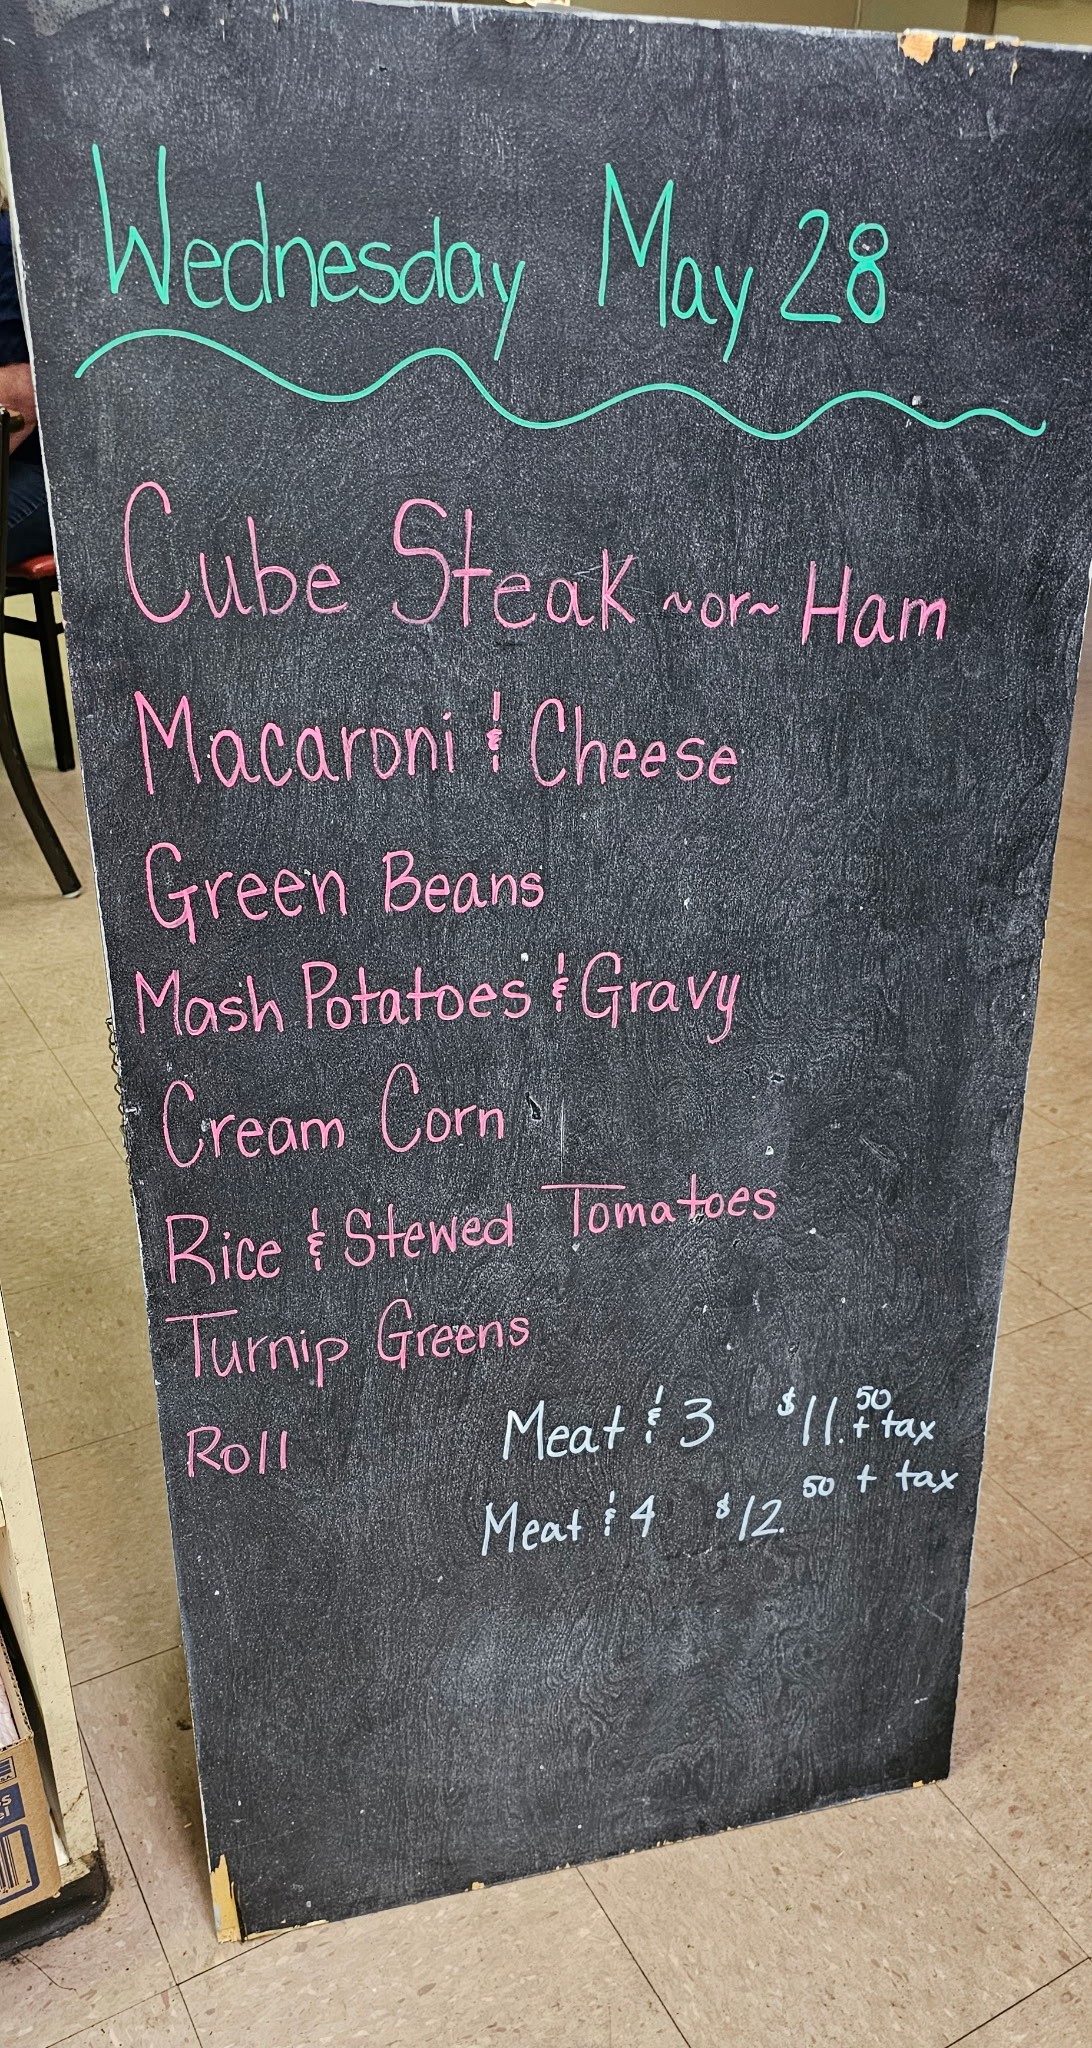 Wednesday May 28
Cube Steak ~or~ Ham
Macaroni & Cheese
Green Beans
Mash Potatoes & Gravy
Cream Corn
Rice & Stewed Tomatoes
Turnip Greens
Roll
Meat & 3 $11.50 + tax
Meat & 4 $12.50 + tax